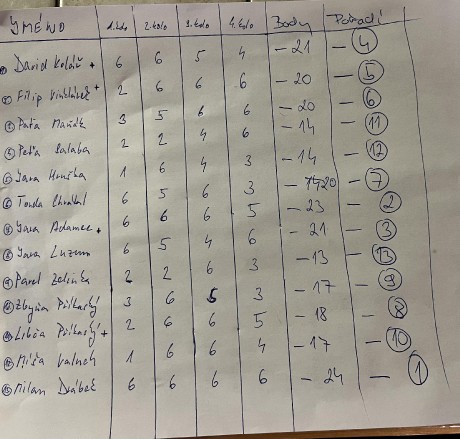 JMÉNO 1.kolo 2.kolo 3.kolo 4.kolo Body Pořadí
David Kolář + 6 6 5 4 - 21 - 4
Filip + 2 6 6 6 - 20 - 5
Paťa 3 5 6 6 - 20 - 6
Peťa Balaba 2 2 4 6 - 14 - 11
Jara Hruška 1 6 4 3 - 14 - 12
Tonda 6 5 6 3 - 20 - 7
Jara Adamec + 6 6 6 5 - 23 - 2
Jara 6 5 4 6 - 21 - 3
Pavel 2 2 6 3 - 13 - 13
Zbyňa 3 6 5 3 - 17 - 9
+ 2 6 6 5 - 18 - 8
Míša 1 6 6 4 - 17 - 10
Milan 6 6 6 6 - 24 - 1